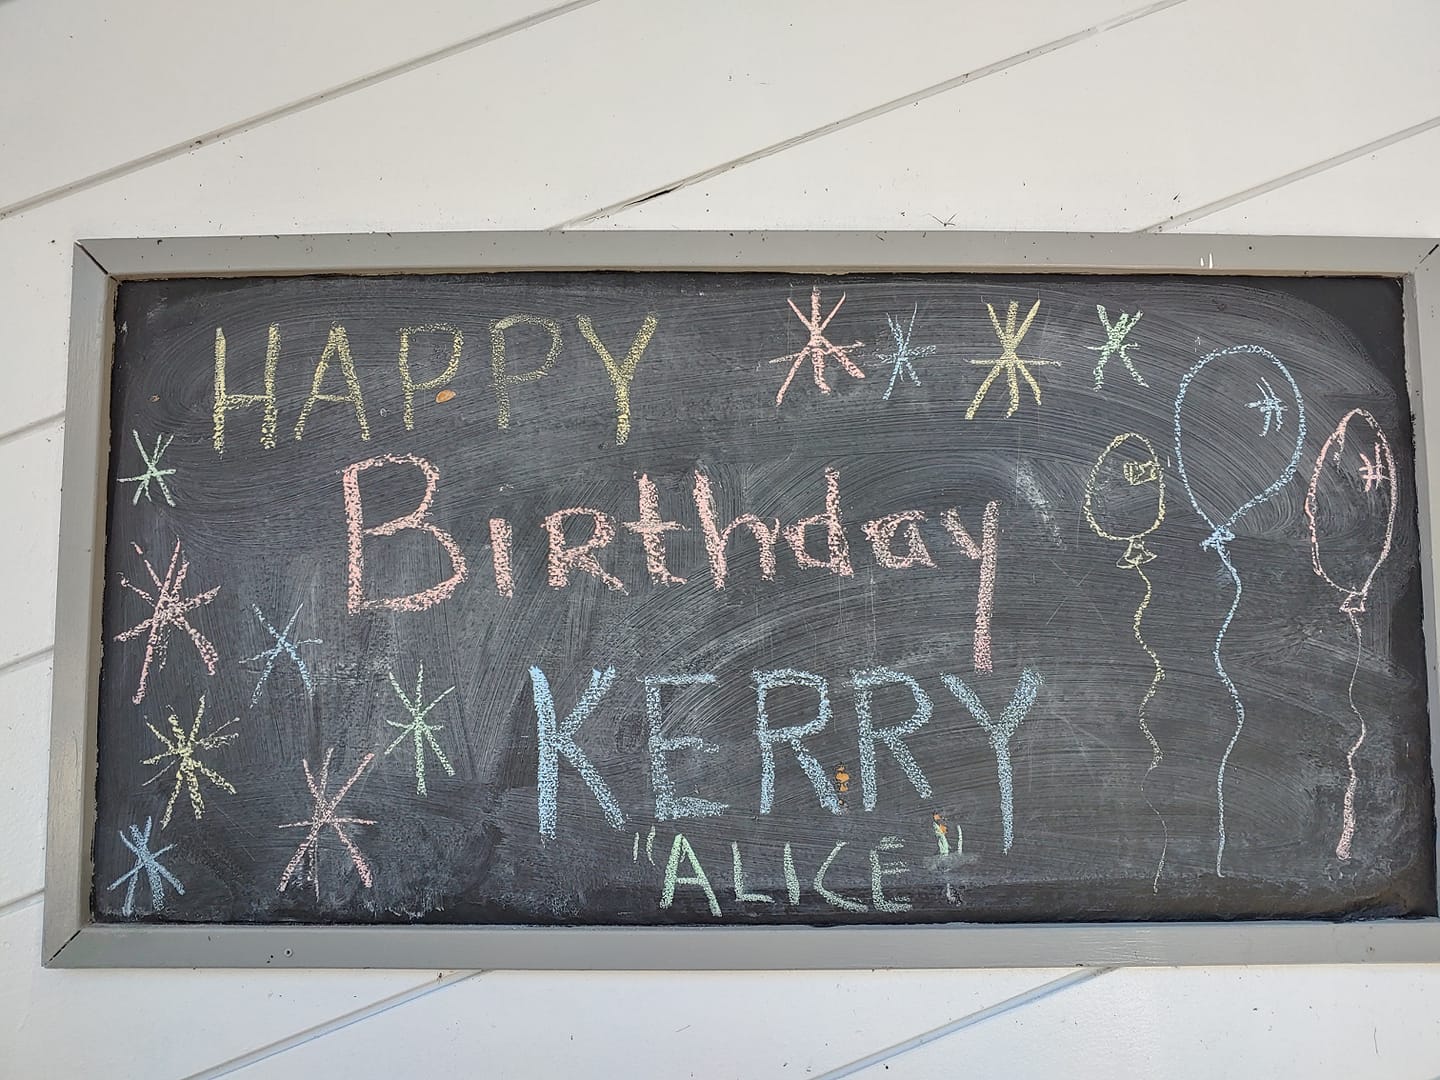 HAPPY
Birthday
KERRY
"ALICE"